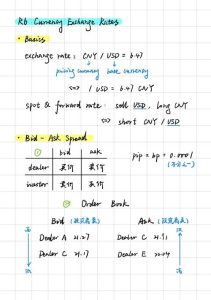 R6 Currency Exchange Rates
• Basics
exchange rate: CNY / USD = 6.47
pricing currency base currency
⇔ 1 USD = 6.47 CNY
spot & forward rate: sell USD, long CNY
⇔ short CNY / USD
• Bid - Ask Spread
bid ask
dealer 买价 卖价
investor 卖价 买价
pip = bp = 0.0001
(万分之一)
Order Book
Bid
Ask
Dealer A
Dealer C
Dealer C
Dealer E